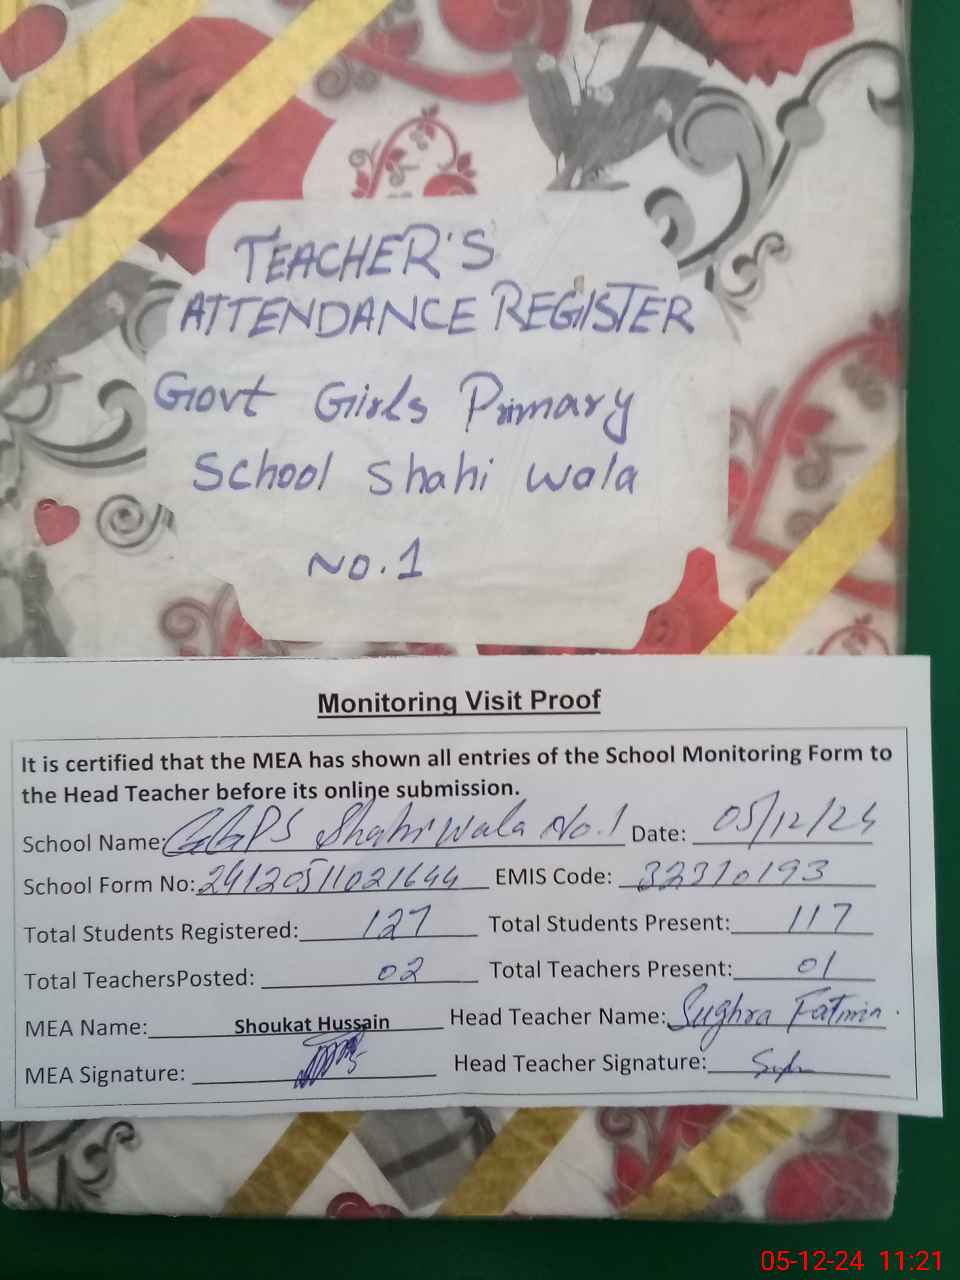 TEACHER'S
ATTENDANCE REGISTER
Govt Girls Primary
School Shahi Wala
No.1
Monitoring Visit Proof
It is certified that the MEA has shown all entries of the School Monitoring Form to
the Head Teacher before its online submission.
School Name: GGPS Shahi Wala No.1 Date: 05/12/24
School Form No: 24120511021644 EMIS Code: 32310193
Total Students Registered: 127 Total Students Present: 117
Total TeachersPosted: 02 Total Teachers Present: 01
MEA Name: Shoukat Hussain Head Teacher Name: Sughra Fatmin.
MEA Signature: Head Teacher Signature:
05-12-24 11:21